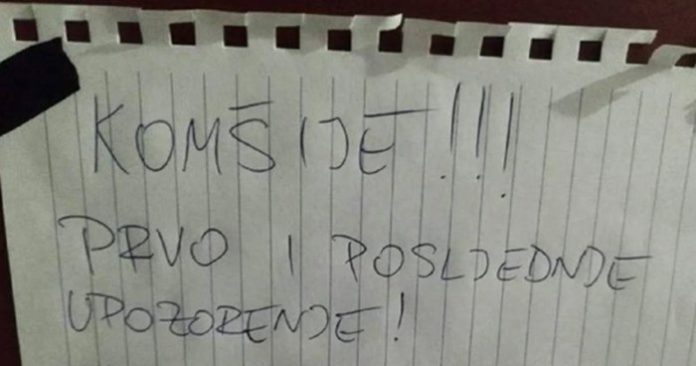 KOMŠIJE!!!
PRVO I POSLJEDNJE
UPOZORENJE!